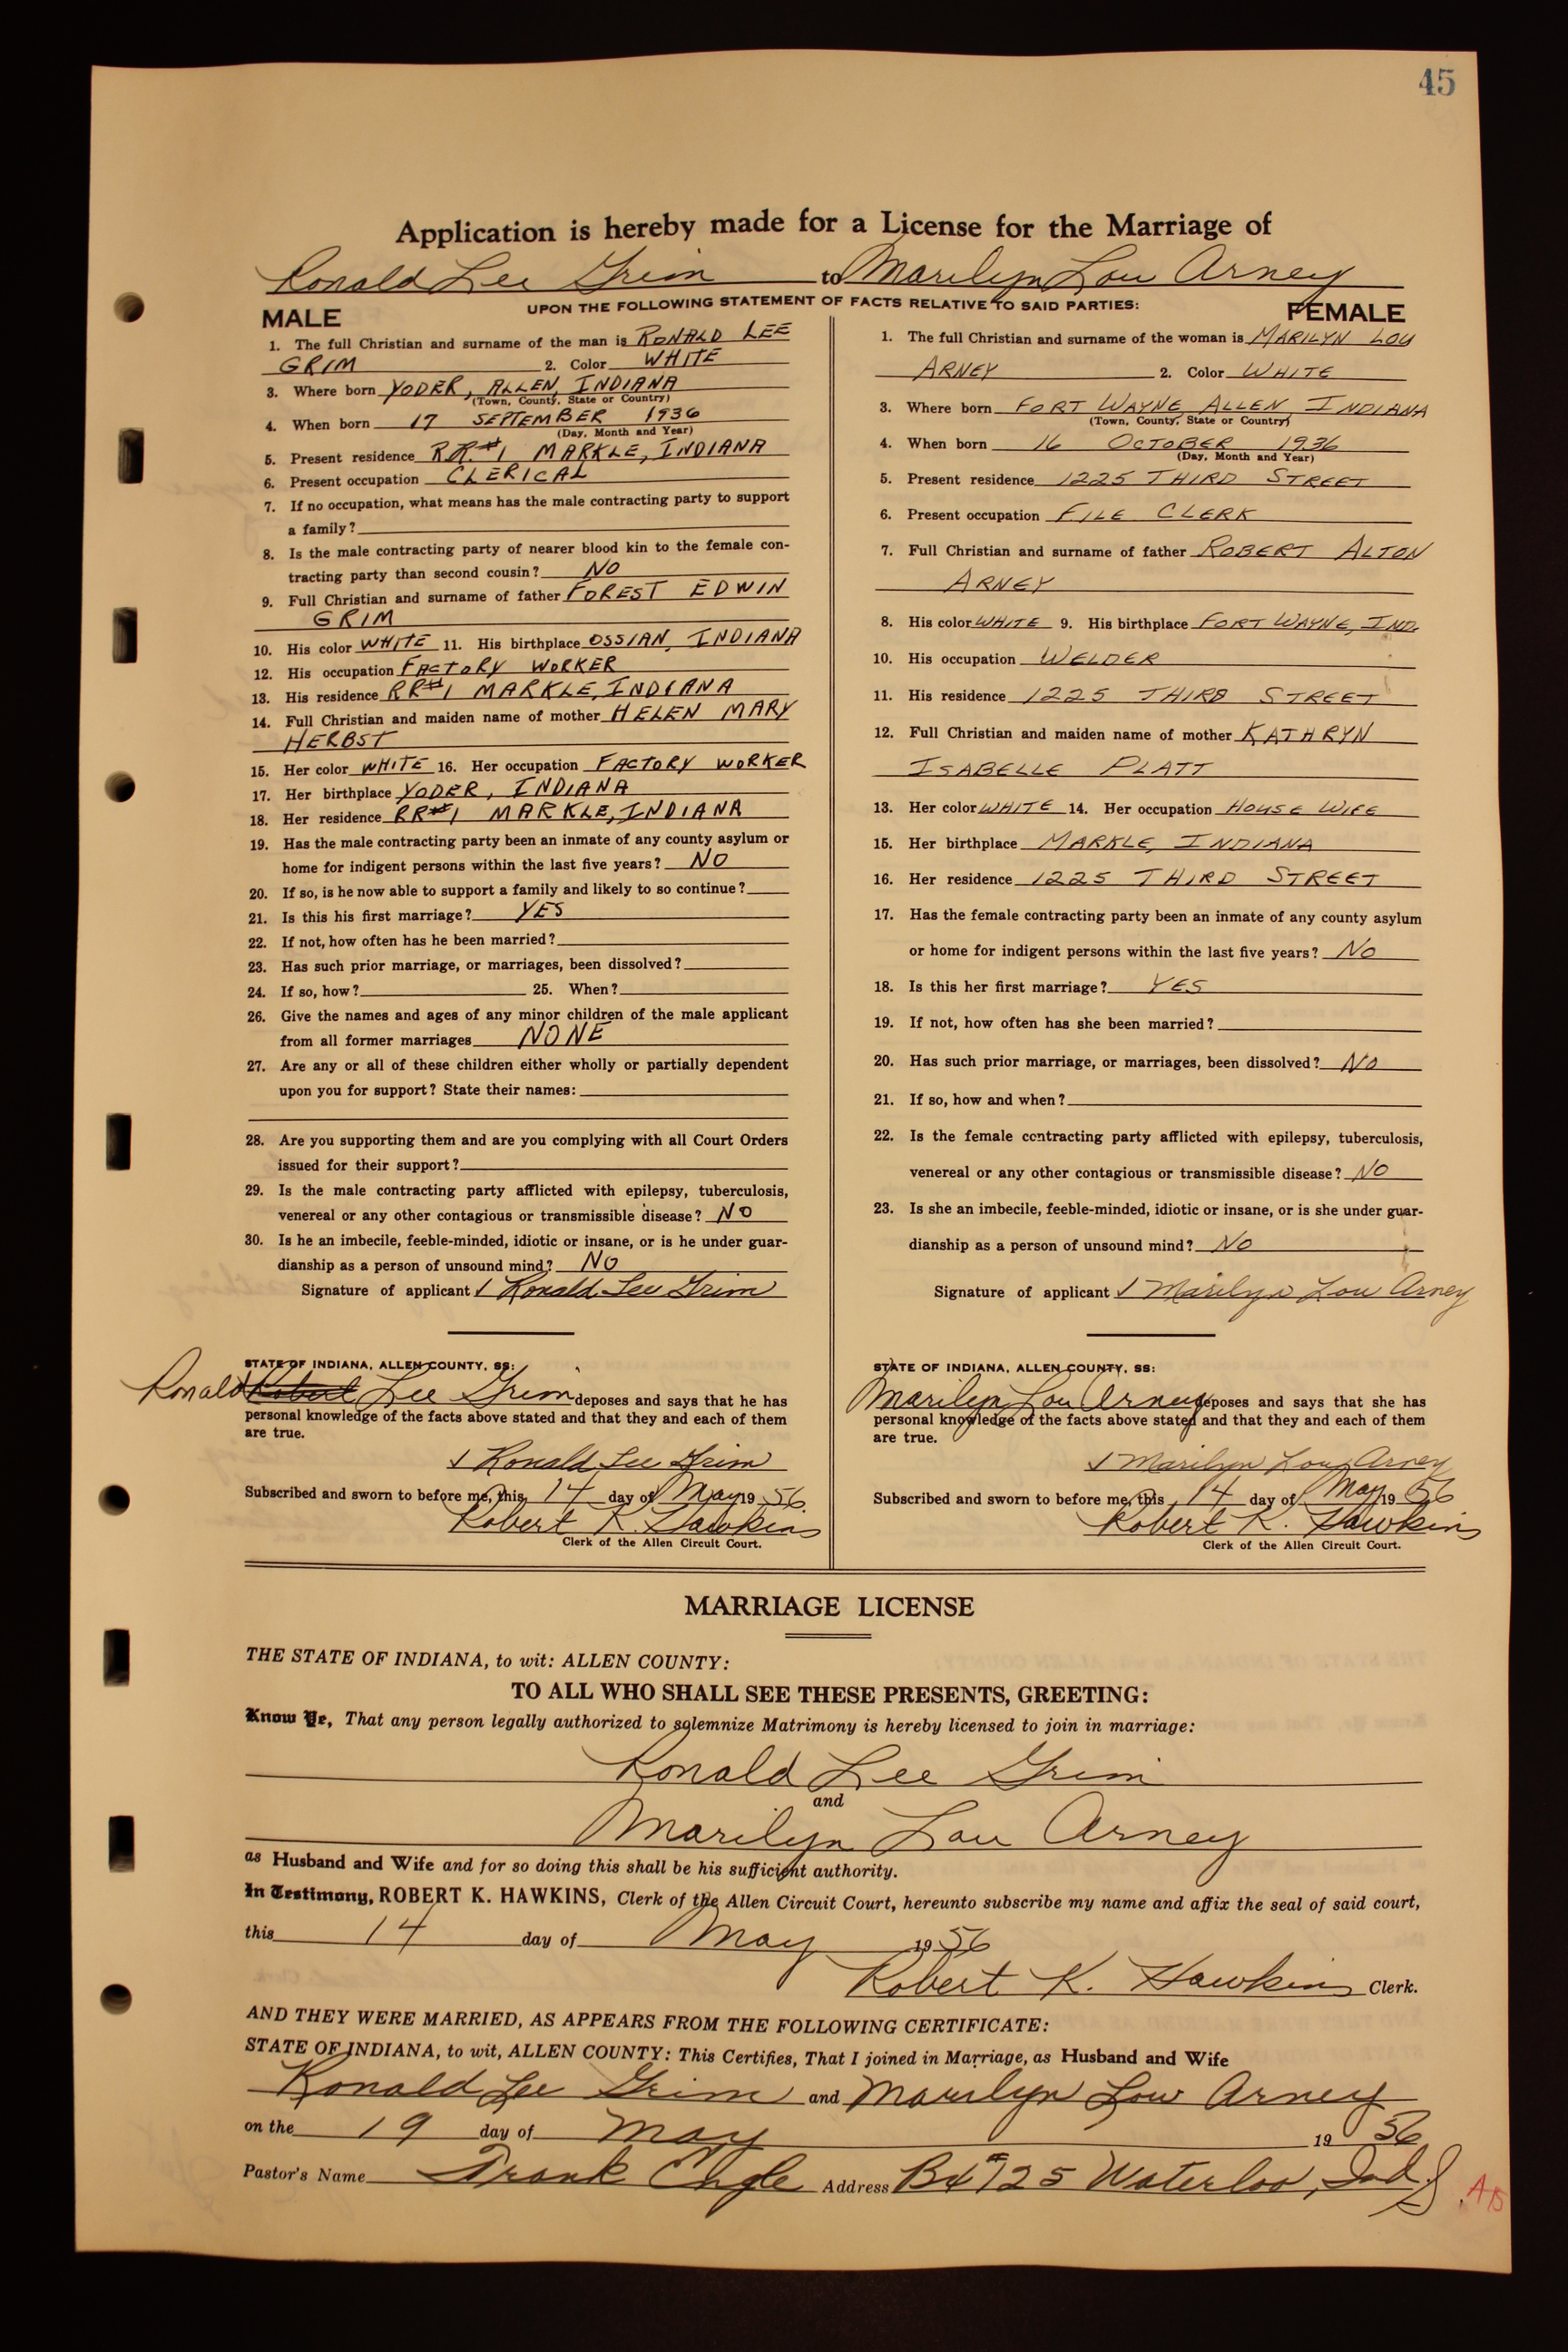 45
Application is hereby made for a License for the Marriage of
Ronald Lee Grim to Marilyn Lou Arney
UPON THE FOLLOWING STATEMENT OF FACTS RELATIVE TO SAID PARTIES:
MALE
1. The full Christian and surname of the man is RONALD LEE
GRIM 2. Color WHITE
3. Where born YODER, ALLEN, INDIANA
(Town, County, State or Country)
4. When born 17 SEPTEMBER 1936
(Day, Month and Year)
5. Present residence R.R.#1 MARKLE, INDIANA
6. Present occupation CLERICAL
7. If no occupation, what means has the male contracting party to support
a family?
8. Is the male contracting party of nearer blood kin to the female con-
tracting party than second cousin? NO
9. Full Christian and surname of father FOREST EDWIN
GRIM
10. His color WHITE 11. His birthplace OSSIAN, INDIANA
12. His occupation FACTORY WORKER
13. His residence RR#1 MARKLE, INDIANA
14. Full Christian and maiden name of mother HELEN MARY
HERBST
15. Her color WHITE 16. Her occupation FACTORY WORKER
17. Her birthplace YODER, INDIANA
18. Her residence RR#1 MARKLE, INDIANA
19. Has the male contracting party been an inmate of any county asylum or
home for indigent persons within the last five years? NO
20. If so, is he now able to support a family and likely to so continue?
21. Is this his first marriage? YES
22. If not, how often has he been married?
23. Has such prior marriage, or marriages, been dissolved?
24. If so, how? 25. When?
26. Give the names and ages of any minor children of the male applicant
from all former marriages NONE
27. Are any or all of these children either wholly or partially dependent
upon you for support? State their names:
28. Are you supporting them and are you complying with all Court Orders
issued for their support?
29. Is the male contracting party afflicted with epilepsy, tuberculosis,
venereal or any other contagious or transmissible disease? NO
30. Is he an imbecile, feeble-minded, idiotic or insane, or is he under guar-
dianship as a person of unsound mind? NO
Signature of applicant Ronald Lee Grim
STATE OF INDIANA, ALLEN COUNTY, SS:
Ronald Robert Lee Grim deposes and says that he has
personal knowledge of the facts above stated and that they and each of them
are true.
Ronald Lee Grim
Subscribed and sworn to before me, this 14 day of May 19 56
Robert K. Hawkins
Clerk of the Allen Circuit Court.
FEMALE
1. The full Christian and surname of the woman is MARILYN LOU
ARNEY 2. Color WHITE
3. Where born FORT WAYNE, ALLEN, INDIANA
(Town, County, State or Country)
4. When born 16 OCTOBER 1936
(Day, Month and Year)
5. Present residence 1225 THIRD STREET
6. Present occupation FILE CLERK
7. Full Christian and surname of father ROBERT ALTON
ARNEY
8. His color WHITE 9. His birthplace FORT WAYNE, IND.
10. His occupation WELDER
11. His residence 1225 THIRD STREET
12. Full Christian and maiden name of mother KATHRYN
ISABELLE PLATT
13. Her color WHITE 14. Her occupation HOUSE WIFE
15. Her birthplace MARKLE, INDIANA
16. Her residence 1225 THIRD STREET
17. Has the female contracting party been an inmate of any county asylum
or home for indigent persons within the last five years? NO
18. Is this her first marriage? YES
19. If not, how often has she been married?
20. Has such prior marriage, or marriages, been dissolved? NO
21. If so, how and when?
22. Is the female contracting party afflicted with epilepsy, tuberculosis,
venereal or any other contagious or transmissible disease? NO
23. Is she an imbecile, feeble-minded, idiotic or insane, or is she under guar-
dianship as a person of unsound mind? NO
Signature of applicant Marilyn Lou Arney
STATE OF INDIANA, ALLEN COUNTY, SS:
Marilyn Lou Arney deposes and says that she has
personal knowledge of the facts above stated and that they and each of them
are true.
Marilyn Lou Arney
Subscribed and sworn to before me, this 14 day of May 19 56
Robert K. Hawkins
Clerk of the Allen Circuit Court.
MARRIAGE LICENSE
THE STATE OF INDIANA, to wit: ALLEN COUNTY:
TO ALL WHO SHALL SEE THESE PRESENTS, GREETING:
Know Ye, That any person legally authorized to solemnize Matrimony is hereby licensed to join in marriage:
Ronald Lee Grim
and
Marilyn Lou Arney
as Husband and Wife and for so doing this shall be his sufficient authority.
In Testimony, ROBERT K. HAWKINS, Clerk of the Allen Circuit Court, hereunto subscribe my name and affix the seal of said court,
this 14 day of May 19 56
Robert K. Hawkins Clerk.
AND THEY WERE MARRIED, AS APPEARS FROM THE FOLLOWING CERTIFICATE:
STATE OF INDIANA, to wit, ALLEN COUNTY: This Certifies, That I joined in Marriage, as Husband and Wife
Ronald Lee Grim and Marilyn Lou Arney
on the 19 day of May 19 56
Pastor's Name Frank Engle Address Bx #725 Waterloo, Ind.